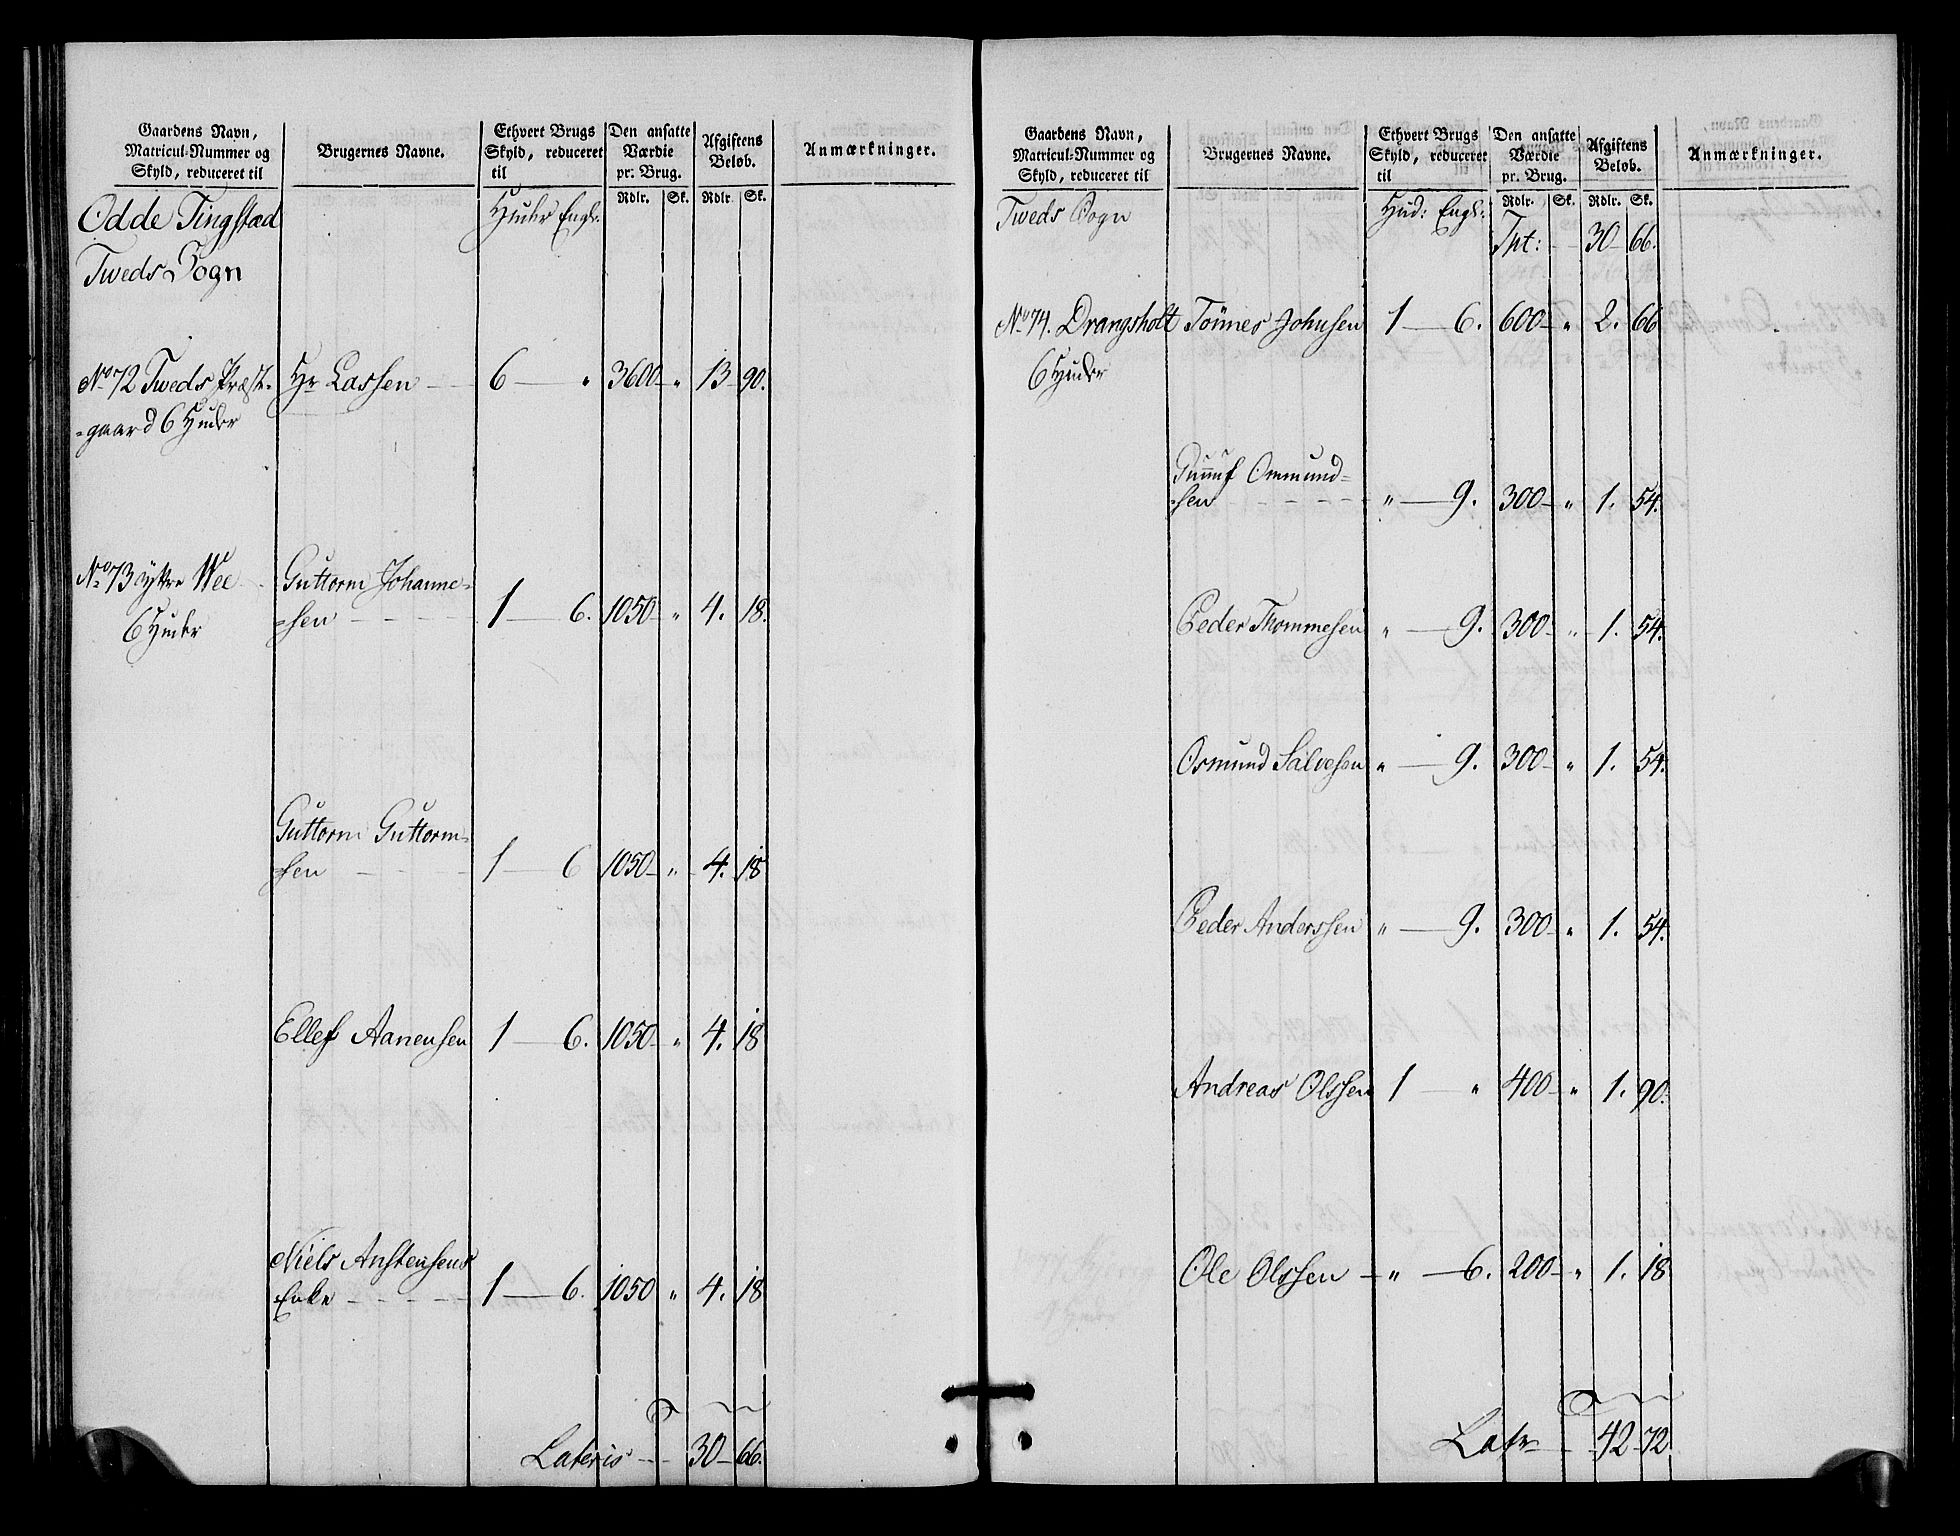 Gaardens Navn,
Matricul-Nummer og
Skyld, reduceret til
Brugernes Navne.
Ethvert Brugs
Skyld, reduceret
til
Den ansatte
Værdie
pr. Brug.
Afgiftens
Beløb.
Anmærkninger.
Rdlr. Sk. Rdlr. Sk.
Odde Tingstæd
Huder Engl:
Tweds Sogn
No 72 Tweds Præst- Hr Lassen 6 " 3600 " 13 90.
=gaard 6 Huder
No 73 ÿttre Wee Guttorm Johanne=
6 Huder =sen 1 6. 1050 " 4. 18.
Guttorm Guttorm=
=sen 1 6 1050 " 4. 18
Ellef Aanensen 1 6. 1050 " 4. 18
Niels Anstensens
Enke 1 6. 1050 " 4. 18
Lateris 30 66.
Gaardens Navn,
Matricul-Nummer og
Skyld, reduceret til
Brugernes Navne.
Ethvert Brugs
Skyld, reduceret
til
Den ansatte
Værdie
pr. Brug.
Afgiftens
Beløb.
Anmærkninger.
Rdlr. Sk. Rdlr. Sk.
Tweds Sogn Hud: Engl:
Tpt: 30 66.
No 74. Drangsholt Tönnes Johnsen 1 6. 600 " 2. 66
6 Huder
Ommund=
=sen " 9. 300 " 1. 54.
Peder Thommesen " 9. 300 " 1. 54.
Osmund Salvesen " 9. 300 " 1. 54.
Peder Anderssen " 9. 300 " 1. 54.
Andreas Olssen 1 " 400 " 1. 90.
Ole Olssen " 6. 200 " 1. 18
Latr 42 72